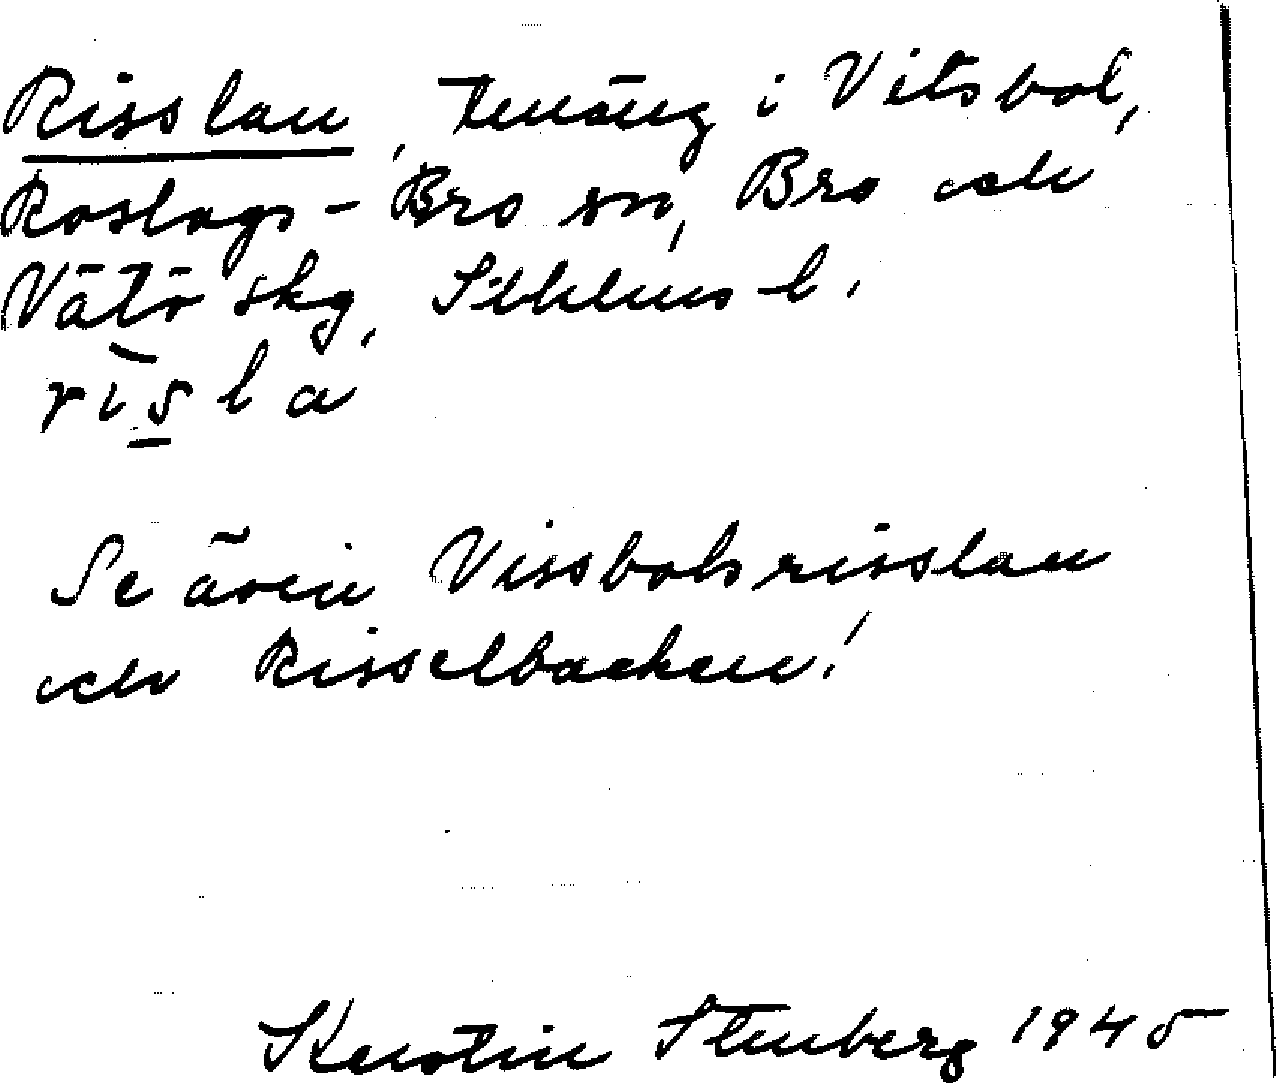 Risslan, tenäng i Vitsbol,
Roslags-Bro sn, Bro och
Vätö skg, Sthlms l.
risla
Se även Vissbolsrisslan
och Risselbacken!
Kerstin Stenberg 1945